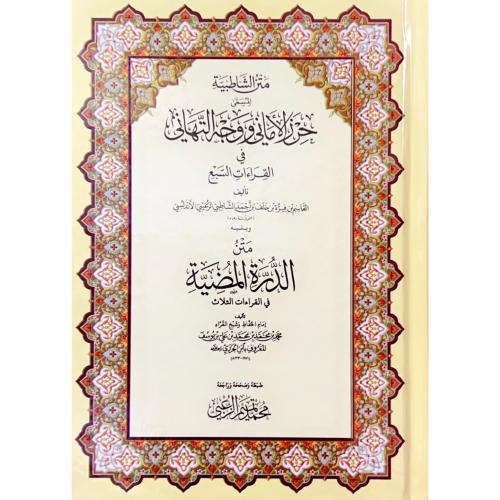 متن الشاطبية
المسمى
حرز الأماني ووجه التهاني
في
القراءات السبع
تأليف
القاسم بن فيرة بن خلف بن أحمد الشاطبي الرعيني الأندلسي
ويليه
متن
الدرة المضية
في القراءات الثلاث
تأليف
إمام الحفاظ وشيخ القراء
محمد بن محمد بن محمد بن علي بن يوسف
المعروف بابن الجزري
ضبطه وصححه وراجعه
محمد تميم الزعبي